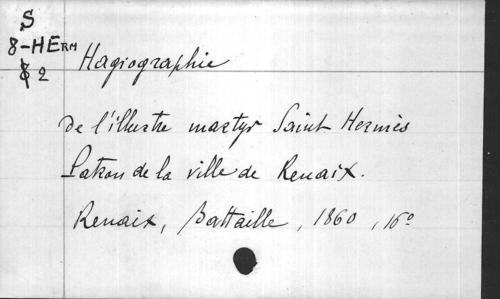 S
8-HERM
8 2
Hagiographie
de l'illustre martyr Saint Hermès
Patron de la ville de Renaix.
Renaix, Battaille, 1860, 16º